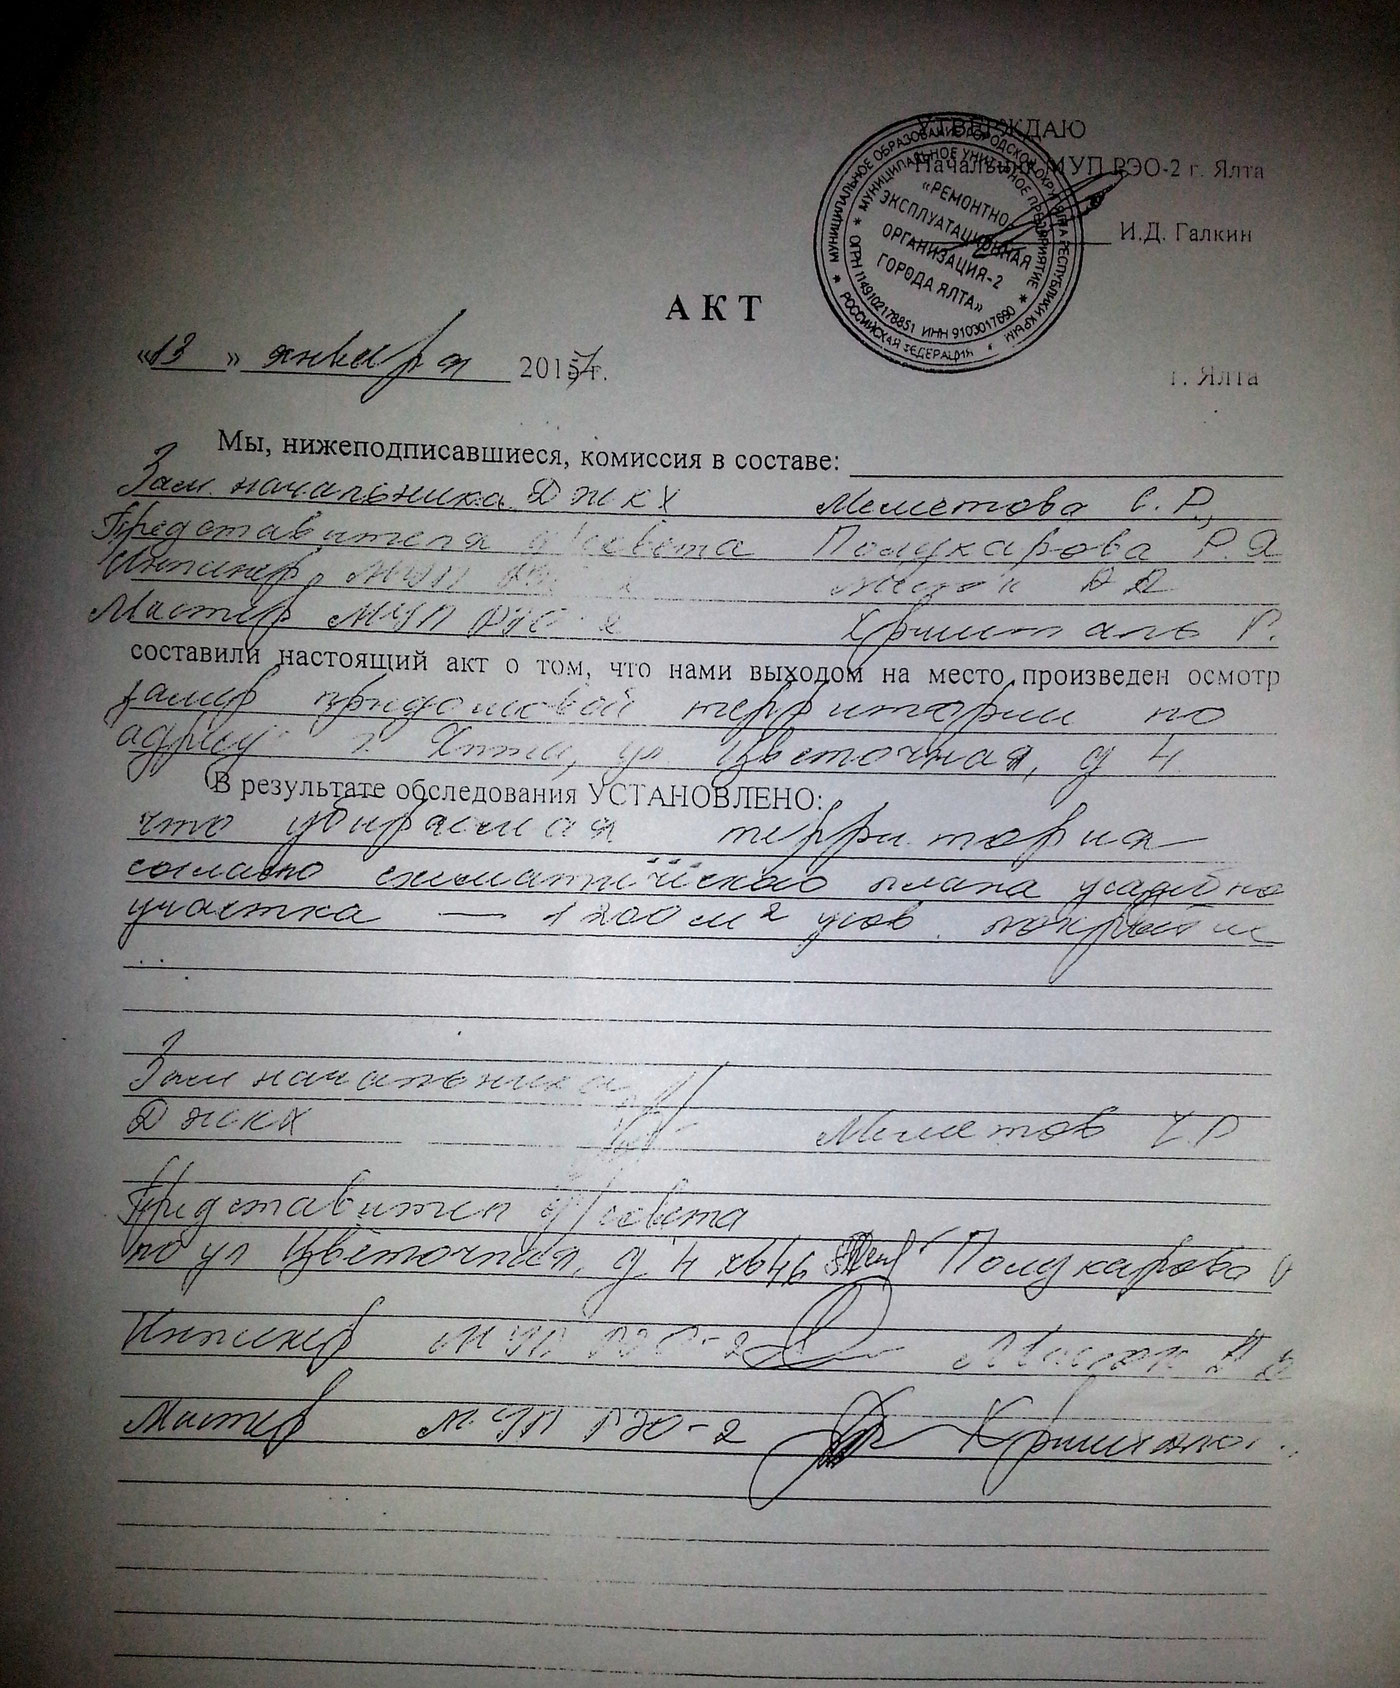 УТВЕРЖДАЮ
Начальник МУП РЭО-2 г. Ялта
И.Д. Галкин
МУНИЦИПАЛЬНОЕ ОБРАЗОВАНИЕ ГОРОДСКОЙ ОКРУГ ЯЛТА РЕСПУБЛИКИ КРЫМ
РОССИЙСКАЯ ФЕДЕРАЦИЯ
МУНИЦИПАЛЬНОЕ УНИТАРНОЕ ПРЕДПРИЯТИЕ
ОГРН 1149102178851 ИНН 9103017690
«РЕМОНТНО
ЭКСПЛУАТАЦИОННАЯ
ОРГАНИЗАЦИЯ-2
ГОРОДА ЯЛТА»
АКТ
«13» января 2017 г.
г. Ялта
Мы, нижеподписавшиеся, комиссия в составе:
Зам. начальника ДЖКХ Меметова С.Р,
Представителя д/совета Полукарова Р.Я
Инженер МУП
Мастер МУП РЭО-2 Г.
составили настоящий акт о том, что нами выходом на место произведен осмотр
замер придомовой территории по
адресу: г. Ялта, ул Цветочная, д 4
В результате обследования УСТАНОВЛЕНО:
что убираемая территория
согласно схематического плана усадебно
участка — 1200 м2 усов. покрытие
Зам начальника
ДЖКХ Меметов
Представител д/совета
по ул Цветочная, д 4 кв46 Полукарова
Инженер МУП РЭО-2
Мастер МУП РЭО-2